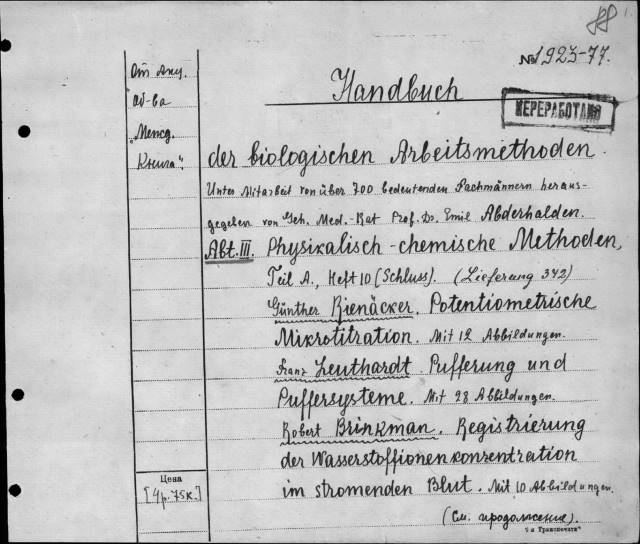 88
№ 1923-77.
От Акц.
об-ва
„Межд.
Книга“
Handbuch
ПЕРЕРАБОТАНО
der biologischen Arbeitsmethoden.
Unter Mitarbeit von über 700 bedeutenden Fachmännern heraus-
gegeben von Geh. Med.-Rat Prof. Dr. Emil Abderhalden.
Abt. III. Physikalisch-chemische Methoden,
Teil A., Heft 10 (Schluss). (Lieferung 342)
Günther Rienäcker. Potentiometrische
Mikrotitration. Mit 12 Abbildungen.
Franz Leuthardt. Pufferung und
Puffersysteme. Mit 28 Abbildungen.
Robert Brinkman. Registrierung
der Wasserstoffionenkonzentration
im stromenden Blut. Mit 10 Abbildungen.
Цена
[4р.75к.]
(См. продолжение).
Транспечати“